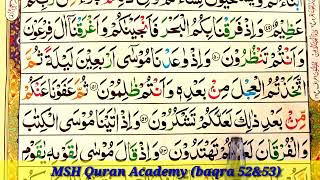 عَظِيْمٌ وَاِذْ فَرَقْنَا بِكُمُ الْبَحْرَ فَاَنْجَيْنٰكُمْ وَاَغْرَقْنَآ اٰلَ فِرْعَوْنَ
وَاَنْتُمْ تَنْظُرُوْنَ وَاِذْ وٰعَدْنَا مُوْسٰٓى اَرْبَعِيْنَ لَيْلَةً ثُمَّ
اتَّخَذْتُمُ الْعِجْلَ مِنْۢ بَعْدِهٖ وَاَنْتُمْ ظٰلِمُوْنَ ثُمَّ عَفَوْنَا عَنْكُمْ
مِّنْۢ بَعْدِ ذٰلِكَ لَعَلَّكُمْ تَشْكُرُوْنَ وَاِذْ اٰتَيْنَا مُوْسَى الْكِتٰبَ
وَالْفُرْقَانَ لَعَلَّكُمْ تَهْتَدُوْنَ وَاِذْ قَالَ مُوْسٰى لِقَوْمِهٖ يٰقَوْمِ
MSH Quran Academy (baqra 52&53)